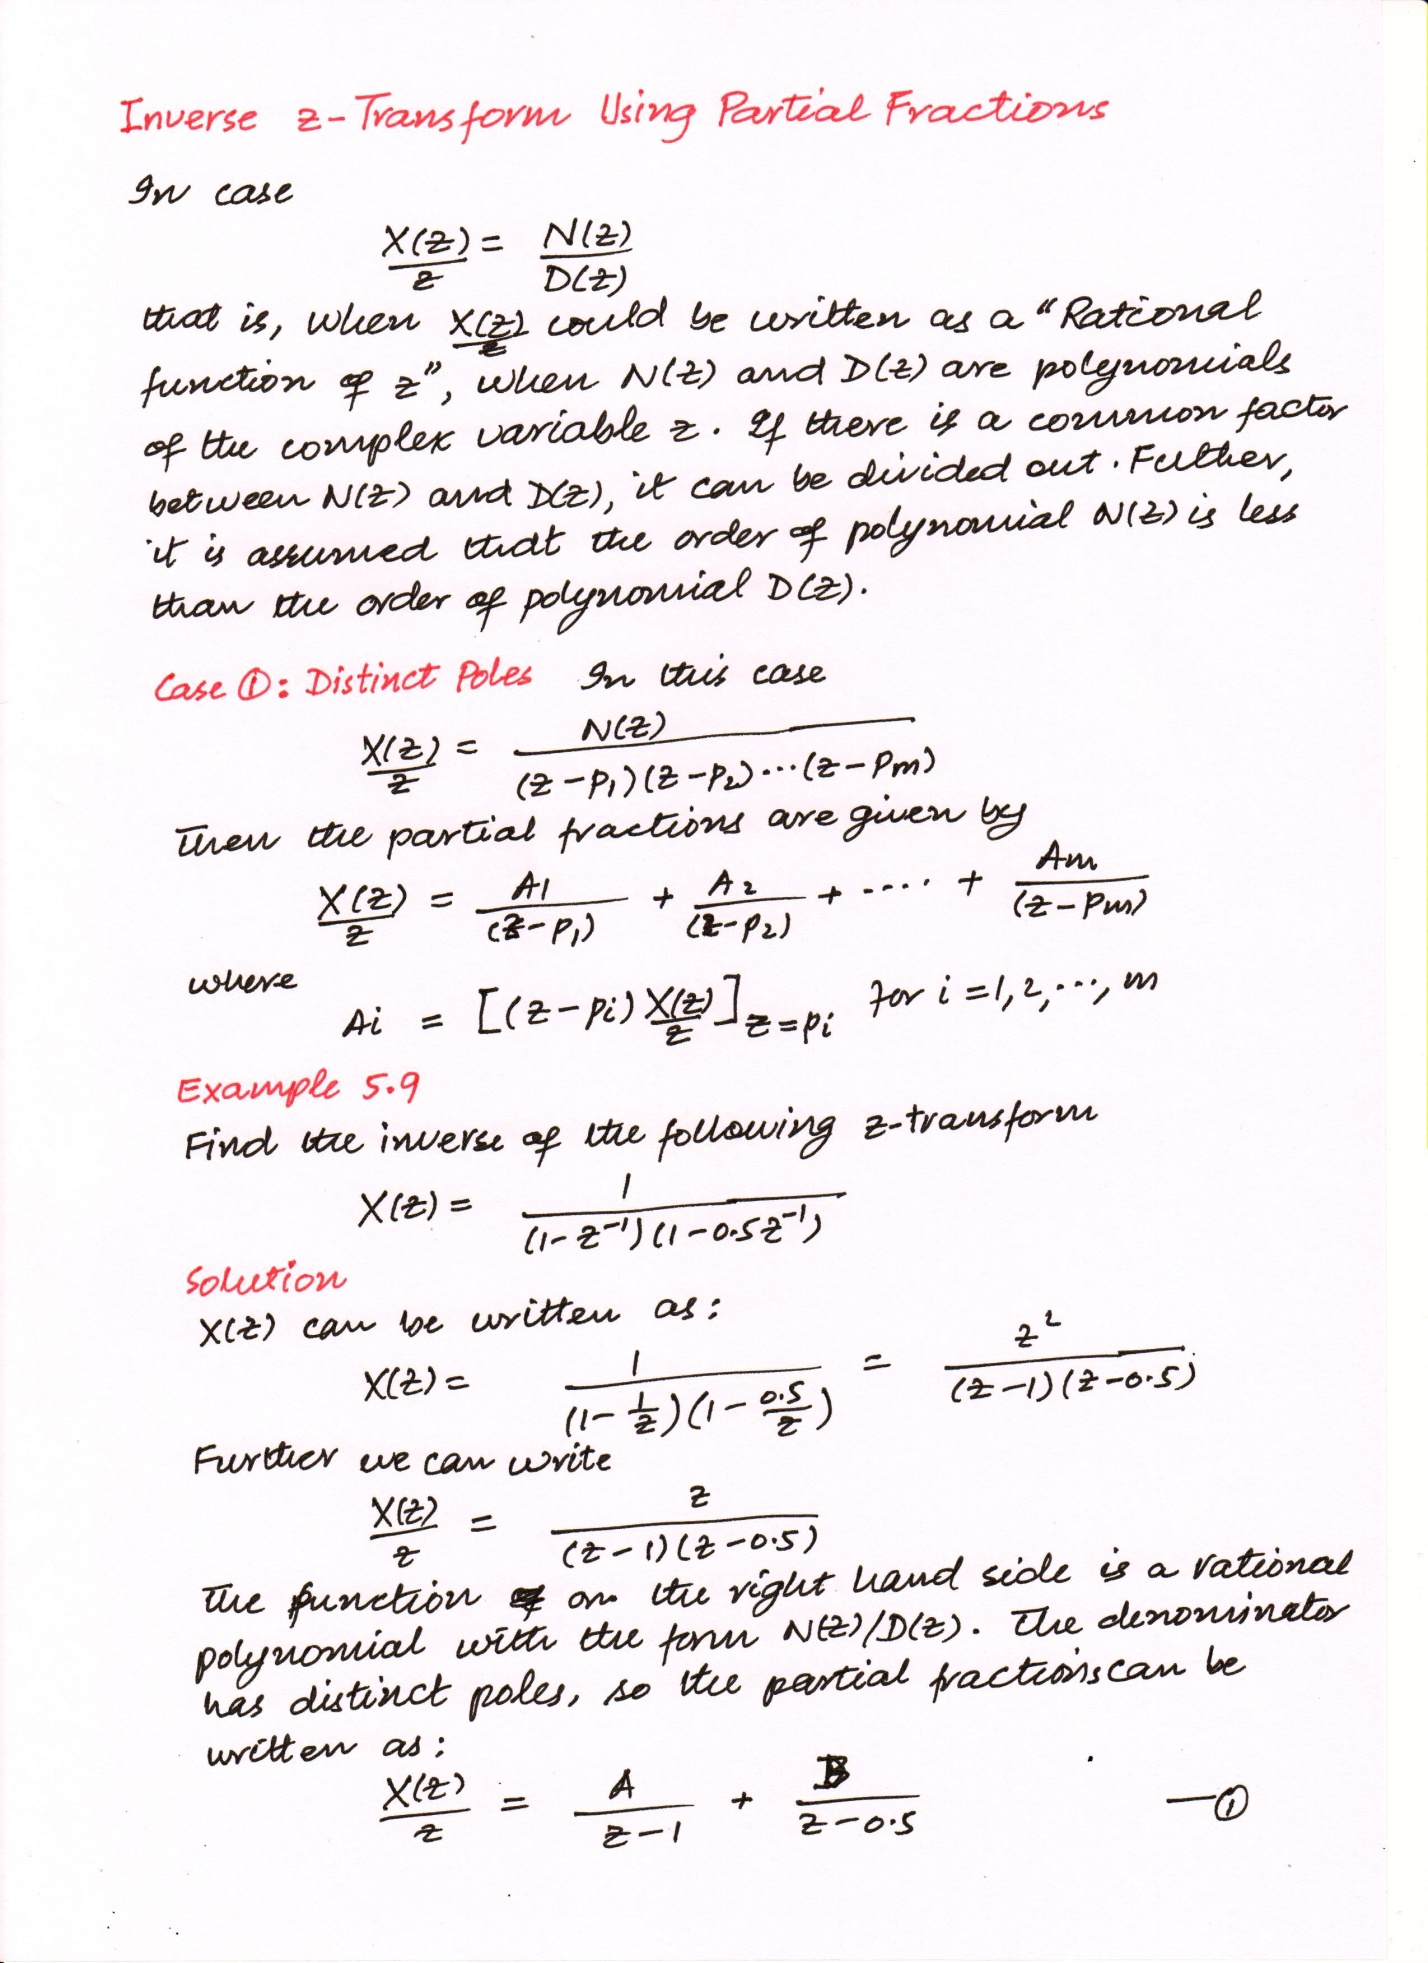 Inverse z-Transform Using Partial Fractions
In case
X(z)/z = N(z)/D(z)
that is, when X(z)/z could be written as a "Rational
function of z", when N(z) and D(z) are polynomials
of the complex variable z. If there is a common factor
between N(z) and D(z), it can be divided out. Futher,
it is assumed that the order of polynomial N(z) is less
than the order of polynomial D(z).
Case ①: Distinct Poles In this case
X(z)/z = N(z)/(z-p₁)(z-p₂)...(z-pm)
Then the partial fractions are given by
X(z)/z = A1/(z-p₁) + A2/(z-p₂) + .... + Am/(z-pm)
where
Ai = [(z-pi) X(z)/z]z=pi for i=1,2,...,m
Example 5.9
Find the inverse of the following z-transform
X(z) = 1/(1-z⁻¹)(1-0.5z⁻¹)
Solution
X(z) can be written as:
X(z) = 1/(1-1/z)(1-0.5/z) = z²/(z-1)(z-0.5)
Further we can write
X(z)/z = z/(z-1)(z-0.5)
The function on the right hand side is a rational
polynomial with the form N(z)/D(z). The denominator
has distinct poles, so the partial fractions can be
written as:
X(z)/z = A/z-1 + B/z-0.5 —①